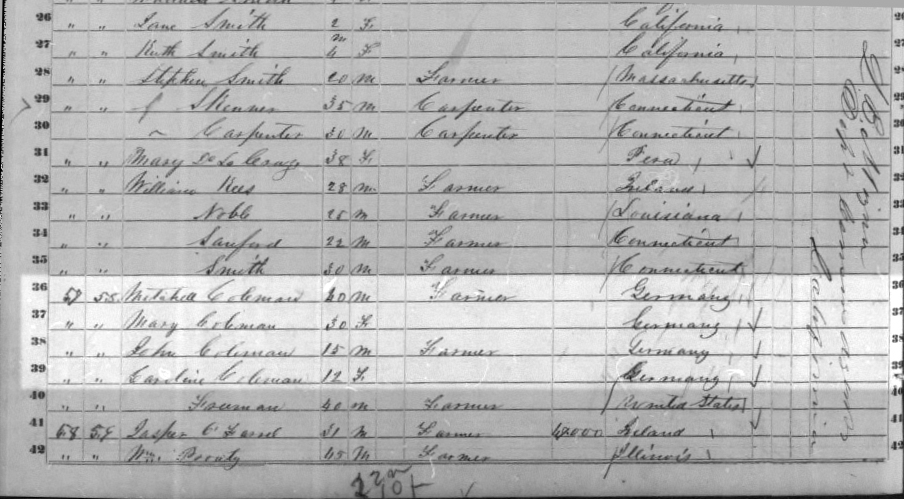 26 " " Jane Smith 2 F. California
27 " " Ruth Smith 4 m F California
28 " " Stephen Smith 20 M Farmer Massachusetts
29 " " Skenner 35 M Carpenter Connecticut
30 " " Carpenter 30 M Carpenter Connecticut
31 " " Mary 38 F. Peru
32 " " William Rees 28 m Farmer Ireland
33 " " Noble 25 m Farmer Louisiana
34 " " Sanford 22 M Farmer Connecticut
35 " " Smith 30 M Farmer Connecticut
36 57 58 Mitchell Coleman 40 M Farmer Germany
37 " " Mary Coleman 30 F. Germany
38 " " John Coleman 15 M Farmer Germany
39 " " Caroline Coleman 12 F. Germany
40 " " Freeman 40 m Farmer United States
41 58 59 Jasper O'Farrel 31 M Farmer Ireland
42 " " Wm. 45 M Farmer Illinois
26
27
28
29
30
31
32
33
34
35
36
37
38
39
40
41
42